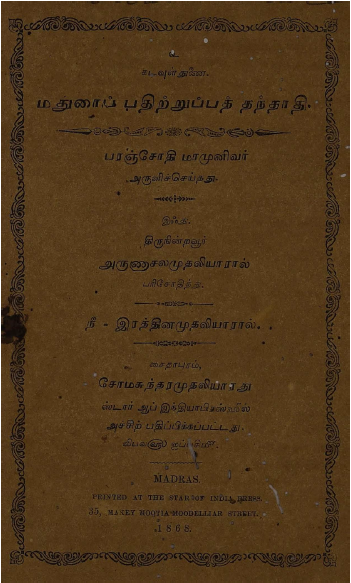 உ
கடவுள் துணை.
மதுரைப் பதிற்றுப்பத் தந்தாதி.
பரஞ்சோதி மாமுனிவர்
அருளிச்செய்தது.
இஃது
திருநின்றவூர்
அருணாசலமுதலியாரால்
பரிசோதித்து.
நீ - இரத்தினமுதலியாரால்.
சைதாபுரம்,
சோமசுந்தரமுதலியாரது
ஸ்டார் ஆப் இந்தியா
அச்சிற் பதிப்பிக்கப்பட்டது.
MADRAS.
PRINTED AT THE STAR OF INDIA PRESS.
MOODELLIAR STREET.
1868.